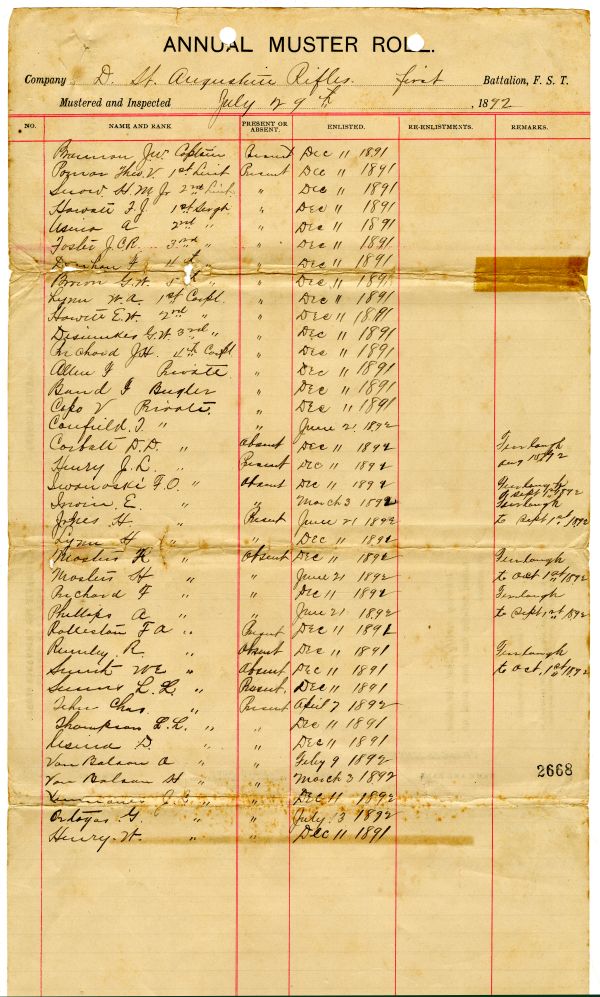 ANNUAL MUSTER ROLL.
Company D. St. Augustine Rifles. First Battalion, F. S. T.
Mustered and Inspected July 29th, 1892
NO. NAME AND RANK PRESENT OR ABSENT. ENLISTED. RE-ENLISTMENTS. REMARKS.
Jw. Captain Present Dec 11 1891
Theo. V. 1st Lieut Present Dec 11 1891
Snow H. M Jr 2nd Lieut " Dec 11 1891
Howatt F. J 1st Sergt " Dec 11 1891
Usina A 2nd " " Dec 11 1891
Foster J. C. R. 3rd " " Dec 11 1891
4th " " Dec 11 1891
Brown G. W. 5th " " Dec 11 1891
Lynn W. A 1st Corpl. " Dec 11 1891
Howatt E. W. 2nd " " Dec 11 1891
Dismukes G. W. 3rd " " Dec 11 1891
Richard J. H. 4th Corpl " Dec 11 1891
Allen F Private " Dec 11 1891
Band F Bugler " Dec 11 1891
Capo V Private. " Dec 11 1891
Canfield. T. " " June 2, 1892
Corbett D. D. " Absent Dec 11 1892 Furlough
Henry J. L. " Present Dec 11 1892 aug 15 1892
Iwanoski F. O. " Absent Dec 11 1892 Furlough
E. " " March 3 1892 Sept 1st 1892 Furlough
Jones H. " Present June 21 1892 to Sept 1st 1892
Lynn H " " Dec 11 1892
Masters K " Absent Dec 11 1892 Furlough
Masters H " " June 21 1892 to Oct 1st 1892
Richard F " " Dec 11 1892 Furlough
Phillips A " " June 21 1892 to Sept 1st 1892
Rolleston F A " Present Dec 11 1892
R. " Absent Dec 11 1891 Furlough
Smith WC " Absent Dec 11 1891 to Oct. 1st 1892
L. K. " Present. Dec 11 1891
Chas. " Present April 7 1892
Thompson L. L. " " Dec 11 1891
Usina D. " " Dec 11 1891
Van Balsan A " " Feby 9 1892
Van Balsan H " " March 3 1892
2668
J. G " " Dec 11 1892
Ortagas G. " " July 13 1892
Henry W. " " Dec 11 1891